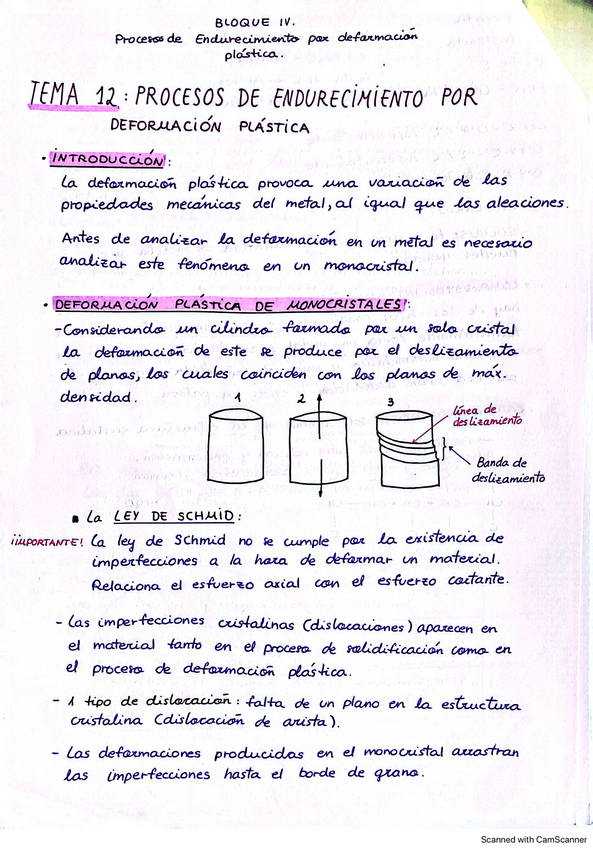 BLOQUE IV.
Procesos de Endurecimiento por deformación
plástica.
TEMA 12: PROCESOS DE ENDURECIMIENTO POR
DEFORMACIÓN PLÁSTICA
• INTRODUCCIÓN:
La deformación plástica provoca una variación de las
propiedades mecánicas del metal, al igual que las aleaciones.
Antes de analizar la deformación en un metal es necesario
analizar este fenómeno en un monocristal.
• DEFORMACIÓN PLÁSTICA DE MONOCRISTALES:
- Considerando un cilindro formado por un solo cristal
la deformación de este se produce por el deslizamiento
de planos, los cuales coinciden con los planos de máx.
densidad.
1 2 3
línea de
deslizamiento
Banda de
deslizamiento
▪ La LEY DE SCHMID:
¡IMPORTANTE! La ley de Schmid no se cumple por la existencia de
imperfecciones a la hora de deformar un material.
Relaciona el esfuerzo axial con el esfuerzo cortante.
- Las imperfecciones cristalinas (dislocaciones) aparecen en
el material tanto en el proceso de solidificación como en
el proceso de deformación plástica.
- 1 tipo de dislocación: falta de un plano en la estructura
cristalina (dislocación de arista).
- Las deformaciones producidas en el monocristal arrastran
las imperfecciones hasta el borde de grano.
Scanned with CamScanner